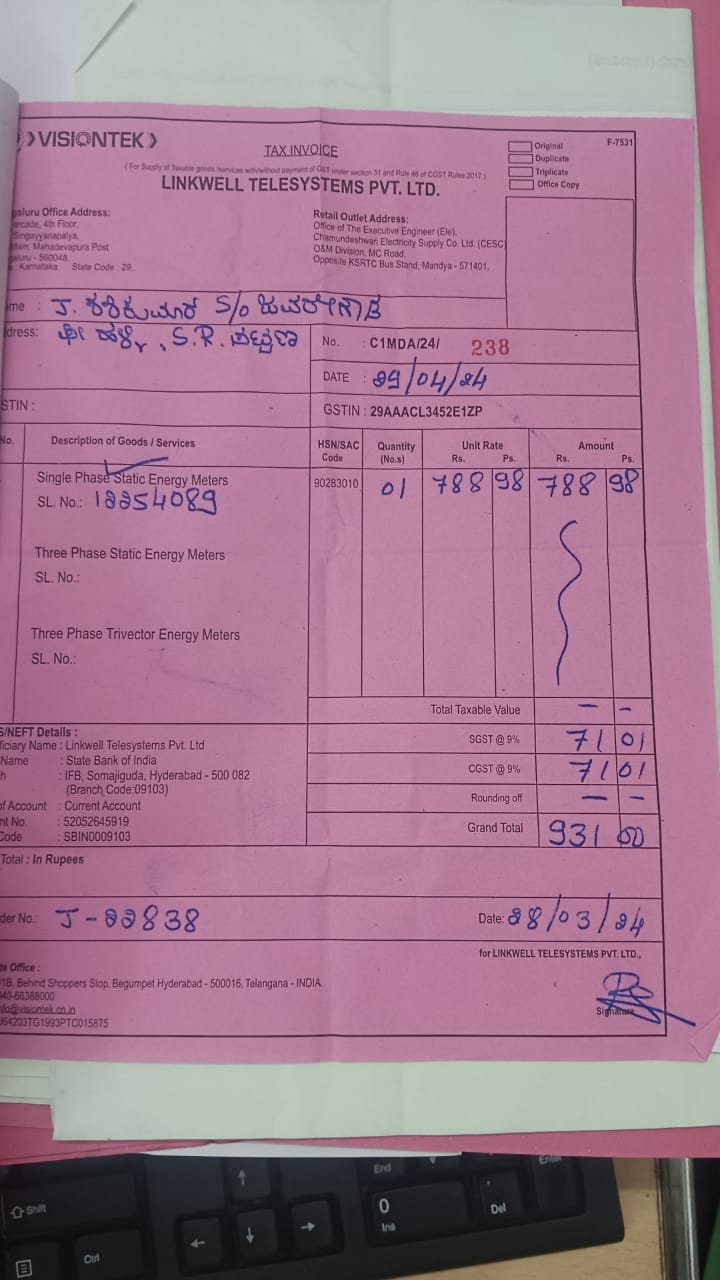 VISIONTEK
TAX INVOICE
( For Supply of Taxable goods /services with/without payment of GST under section 31 and Rule 46 of CGST Rules.2017 )
LINKWELL TELESYSTEMS PVT. LTD.
Original
Duplicate
Triplicate
Office Copy
F-7531
galuru Office Address:
arcade, 4th Floor,
Singayyanapalya,
Main, Mahadevapura Post
galuru - 560048.
: Karnataka State Code : 29.
Retail Outlet Address:
Office of The Executive Engineer (Ele),
Chamundeshwari Electricity Supply Co. Ltd. (CESC)
O&M Division, MC Road,
Opposite KSRTC Bus Stand, Mandya - 571401.
me : J. ಶಶಿಕುಮಾರ S/o ಜವರೇಗೌಡ
dress: , S.R. ಪಟ್ಟಣ
No. : C1MDA/24/ 238
DATE : 29/04/24
STIN :
GSTIN : 29AAACL3452E1ZP
No. Description of Goods / Services HSN/SAC Code Quantity (No.s) Unit Rate Rs. Ps. Amount Rs. Ps.
Single Phase Static Energy Meters 90283010 01 788 98 788 98
SL. No.: 12254089
Three Phase Static Energy Meters
SL. No.:
Three Phase Trivector Energy Meters
SL. No.:
Total Taxable Value — –
S/NEFT Details :
ficiary Name : Linkwell Telesystems Pvt. Ltd
Name : State Bank of India
h : IFB, Somajiguda, Hyderabad - 500 082
(Branch Code:09103)
of Account : Current Account
nt No. : 52052645919
Code : SBIN0009103
SGST @ 9% 71 01
CGST @ 9% 71 01
Rounding off — –
Grand Total 931 00
Total : In Rupees
der No.: J-22838
Date: 28/03/24
for LINKWELL TELESYSTEMS PVT. LTD.,
te Office :
1B, Behind Shoppers Stop, Begumpet Hyderabad - 500016, Telangana - INDIA.
040-66388000
nfo@visiontek.co.in
J64203TG1993PTC015875
Signature